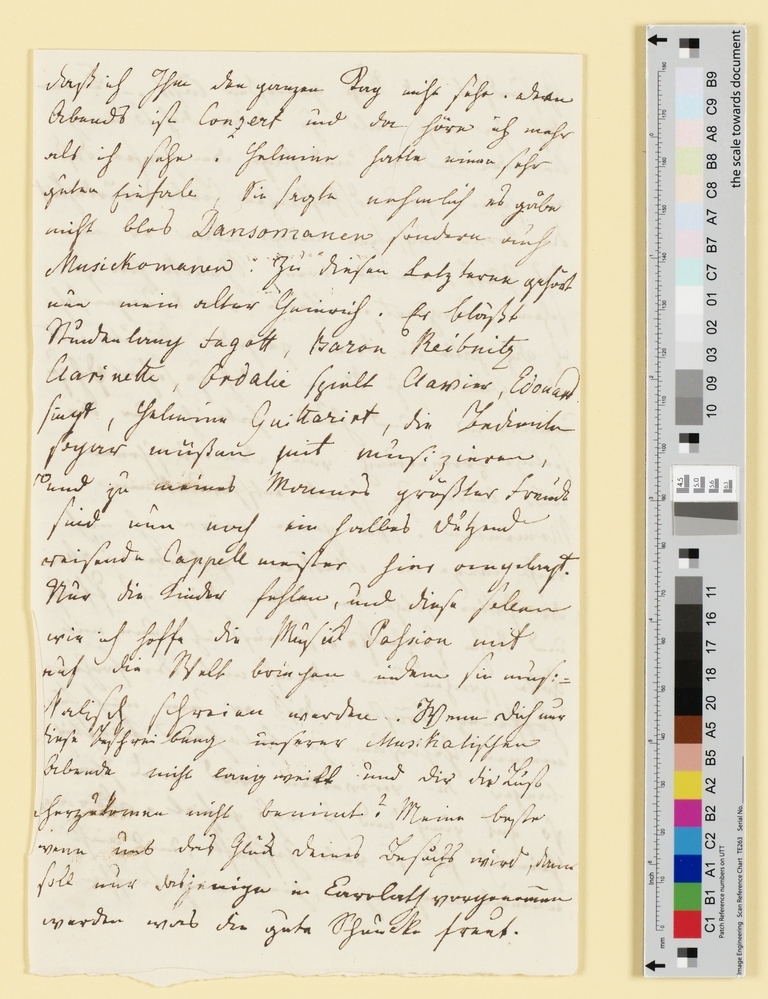 daß ich Ihn den ganzen Tag nicht sehe. denn
Abends ist Conzert und da höre ich mehr
als ich sehe. Helmine hatte einen sehr
guten Einfall, Sie sagte nehmlich es gäbe
nicht blos Dansomanen sondern auch
Musickomanen. Zu diesen Letztern gehört
nun mein alter Heinrich. Er bläßt
Stundenlang Fagott, Baron Reibnitz
Clarinette, Ordalie spielt Clavier, Edouard
singt, Helmine Guittarirt, die Bediente
sogar müßen mit musizieren,
und zu meines Mannes größter Freude
sind nun noch ein halbes dutzend
reisende Cappellmeister hier angelangt.
Nur die Kinder fehlen, und diese sollen
wie ich hoffe die Musick Paßion mit
auf die Welt bringen indem sie musi=
kalisch schreien werden. Wenn dich nur
diese Beschreibung unserer Musikalischen
Abende nicht langweilt und dir die Lust
herzukomen nicht benimt? Meine beste
wenn uns das Glück deines Besuchs wird, dann
soll nur dasjenige in Carolath vorgenommen
werden was die gute Schunke freut.
the scale towards document
B9 C9 A8 B8 C8 A7 B7 C7 01 02 03 09 10
11 16 17 18 19 20 A5 B5 A2 B2 C2 A1 B1 C1
4.5 5.0 5.6 6.3
Patch Reference numbers on UTT
Image Engineering Scan Reference Chart TE263 Serial No.
inch
mm